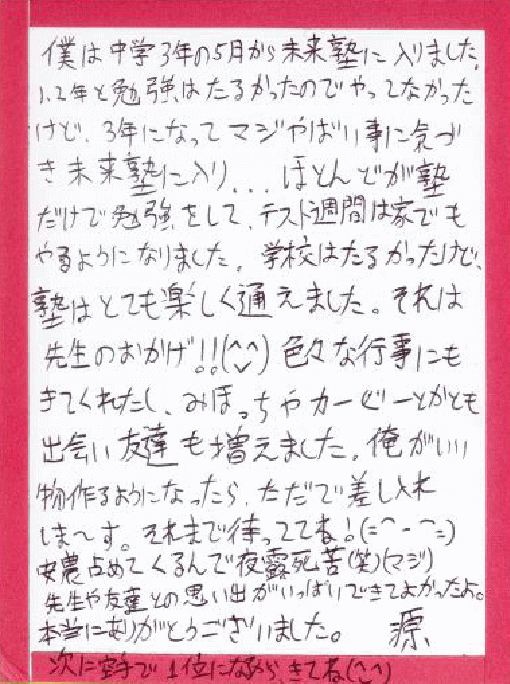 僕は中学3年の5月から未来塾に入りました。
1、2年と勉強はたるかったのでやってなかった
けど、3年になってマジやばい事に気づ
き未来塾に入り...ほとんどが塾
だけで勉強をして、テスト週間は家でも
やるようになりました。学校はたるかったけど、
塾はとても楽しく通えました。それは
先生のおかげ!!(^◡^) 色々な行事にも
きてくれたし、みほっちゃカーくーとかとも
出会い友達も増えました。俺がいい
物作るようになったら、ただで差し入れ
しま〜す。それまで待っててね!(=^-^=)
農占めてくるんで夜露死苦(笑)(マジ)
先生や友達との思い出がいっぱいできてよかったよ。
本当にありがとうございました。 源
次に空手で1位になるから、きてね(^◡^)